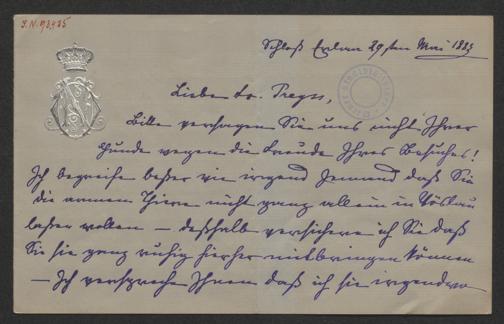 I.N. 93.485
Schloß Erlaa 29ten Mai 1885
Liebe Fr.
Bitte versagen Sie uns nicht Ihrer
Hunde wegen die Freude Ihres Besuches!
Ich begreife besser wie irgend Jemand daß Sie
die armen Thiere nicht ganz allein in Vöslau
lassen wollen – deßhalb versichere ich Sie daß
Sie sie ganz ruhig hierher mitbringen können
– Ich verspreche Ihnen daß ich sie irgendwo